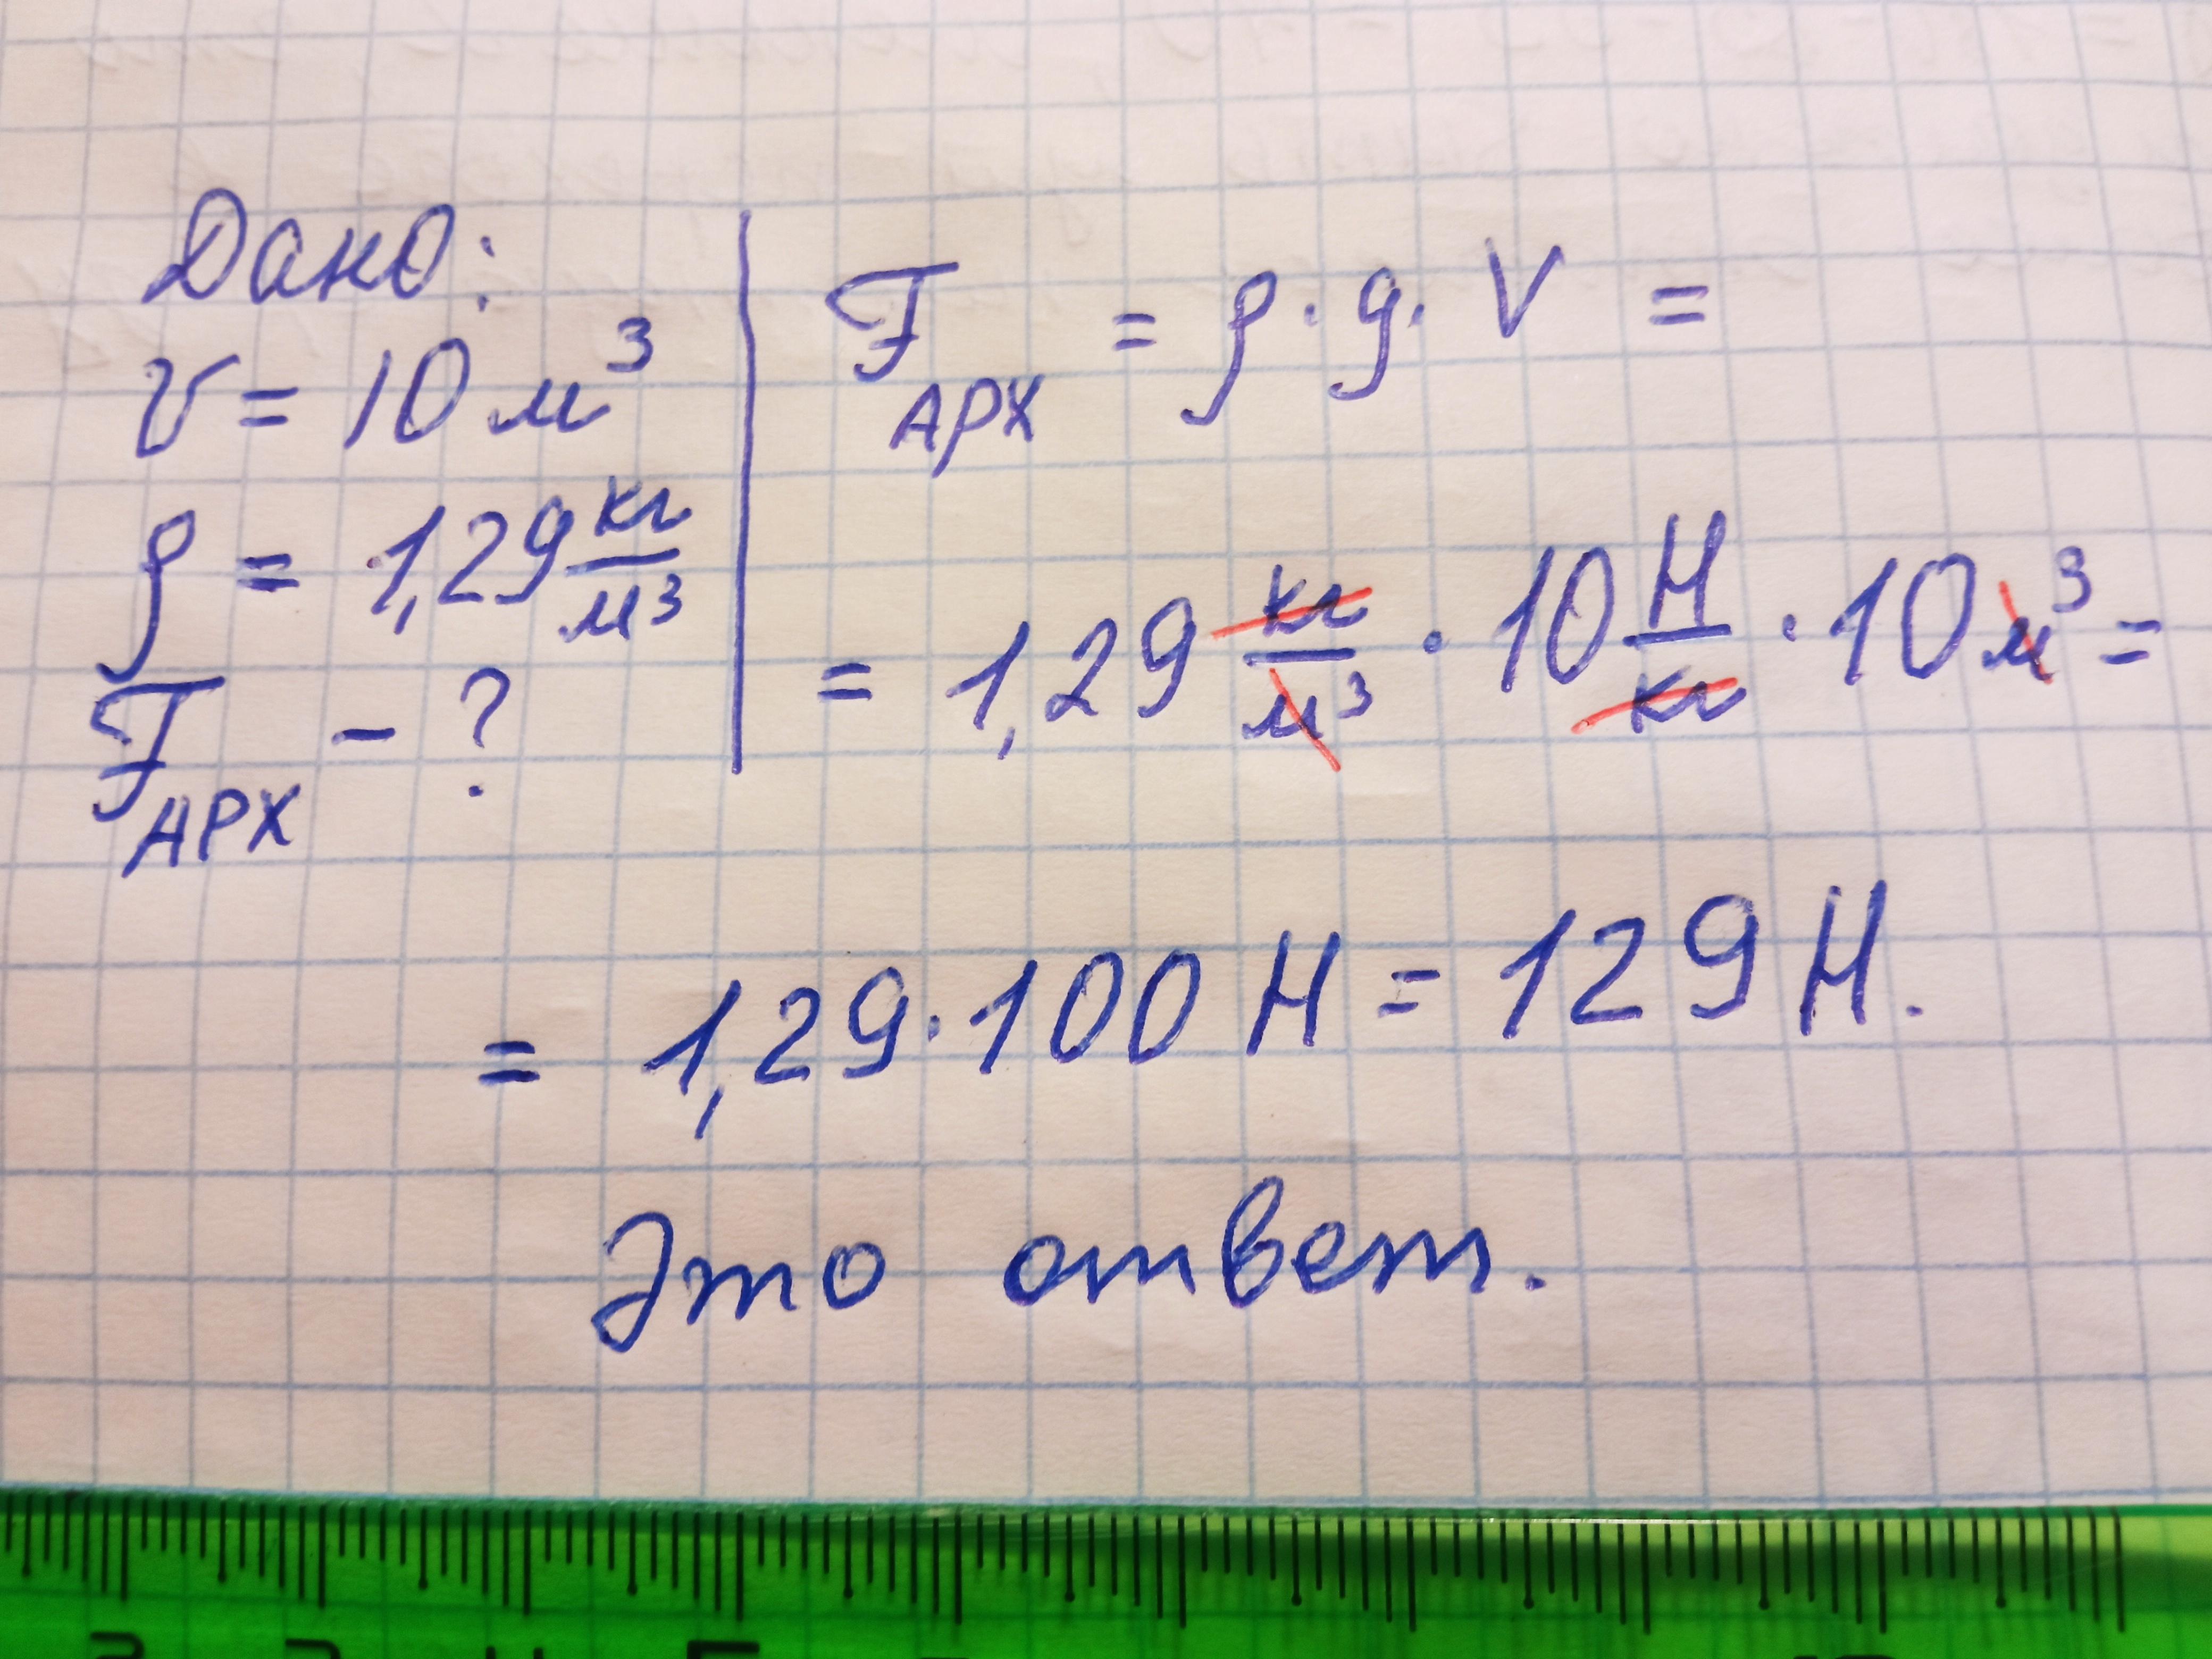 Дано:
V = 10 м³
ρ = 1,29 кг/м³
F АРХ - ?
F АРХ = ρ · g · V =
= 1,29 кг/м³ · 10 Н/кг · 10 м³ =
= 1,29 · 100 Н = 129 Н.
Это ответ.